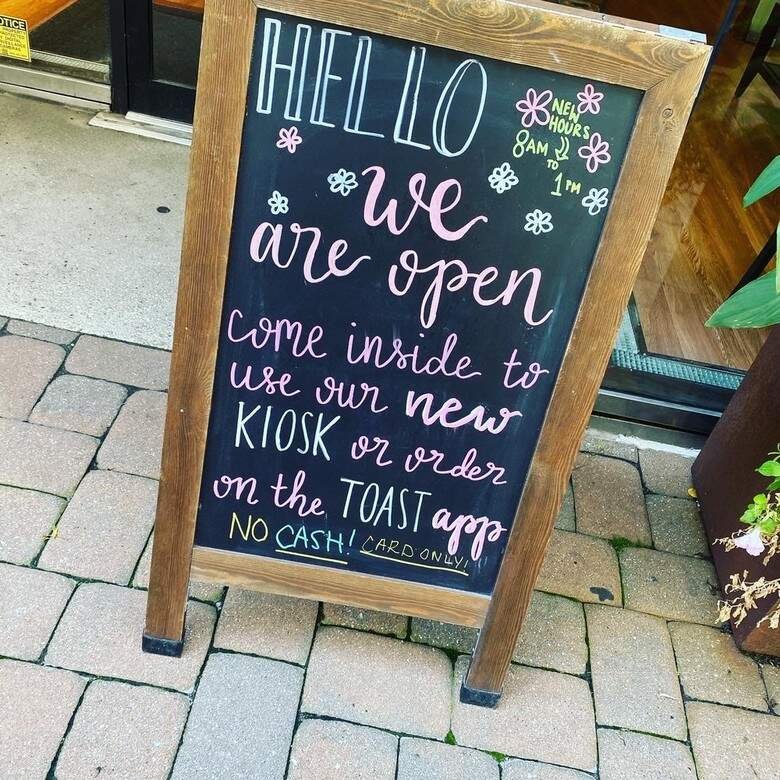 NOTICE
HELLO
NEW
HOURS
8AM
TO
1PM
we
are open
come inside to
use our new
KIOSK or order
on the TOAST app
NO CASH! CARD ONLY!